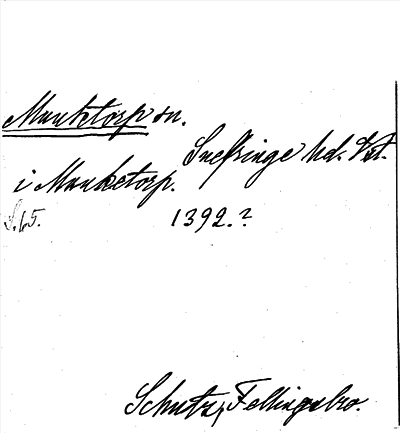 Munktorp sn.
Snefringe hd. Vstl.
i Munketorp.
S. 65. 1392.?
Schutz, Fellingsbro.